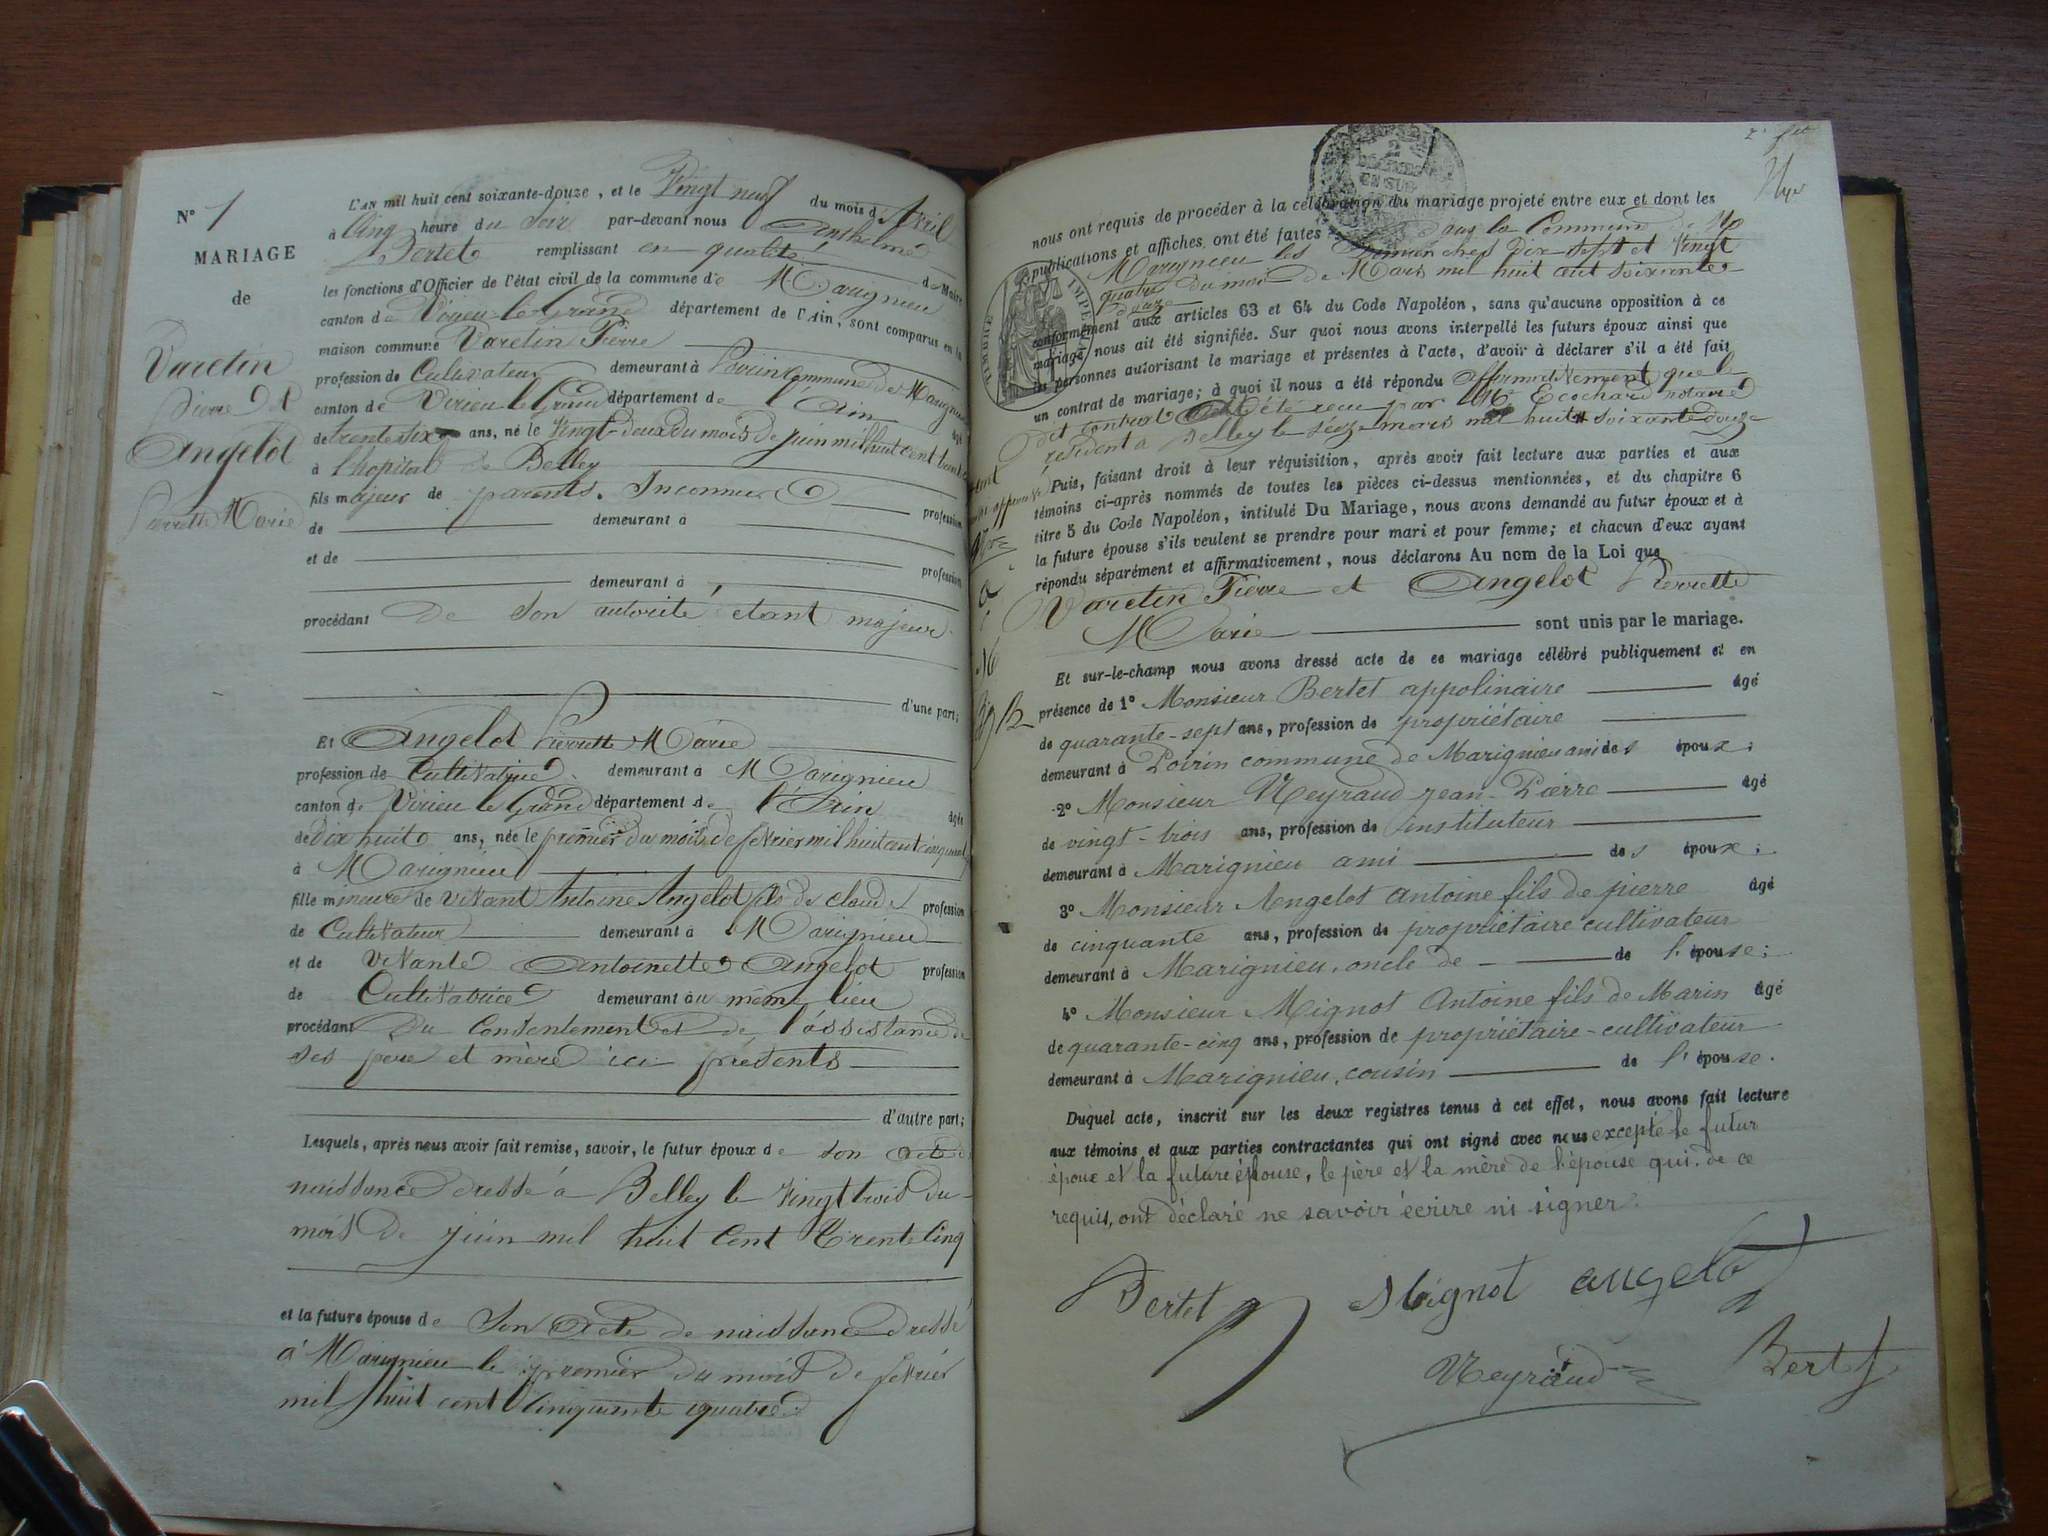 N° 1
MARIAGE
de
Varetin
Pierre et
Angelot
Pierrette Marie
L'AN mil huit cent soixante-douze, et le Vingt neuf du mois d'Avril
à Cinq heure du Soir par-devant nous Anthelme
Bertet remplissant en qualité de Maire
les fonctions d'Officier de l'état civil de la commune de Marignieu
canton de Virieu-le-Grand département de l'Ain, sont comparus en la
maison commune Varetin Pierre
profession de Cultivateur demeurant à Poirin Commune de Marignieu
canton de Virieu le Grand département de l'Ain âgé
de trente six ans, né le Vingt-deux du mois de juin mil huit cent trente
à l'hopital de Belley
fils majeur de parents Inconnus profession
de demeurant à
et de profession
demeurant à
procédant de son autorité étant majeur
d'une part;
Et Angelot Pierrette Marie
profession de Cultivatrice demeurant à Marignieu
canton de Virieu le Grand département de l'Ain âgée
de dix huit ans, née le premier du mois de fevrier mil huit cent cinquante
à Marignieu
fille mineure de vivant Antoine Angelot fils de claude profession
de Cultivateur demeurant à Marignieu
et de vivante Antoinette Angelot profession
de Cultivatrice demeurant au même lieu
procédant du Consentement et de l'assistance de
ses père et mère ici présents
d'autre part;
Lesquels, après nous avoir fait remise, savoir, le futur époux de son acte de
naissance dressé à Belley le vingt trois du
mois de juin mil huit Cent Trente Cinq
et la future épouse de Son Acte de naissance dressé
à Marignieu le premier du mois de fevrier
mil huit cent Cinquante quatre
nous ont requis de procéder à la célébration du mariage projeté entre eux et dont les
publications et affiches ont été faites dans la Commune de
Marignieu les Dimanches dix sept et Vingt
quatre du mois de Mars mil huit cent soixante
douze
conformément aux articles 63 et 64 du Code Napoléon, sans qu'aucune opposition à ce
mariage nous ait été signifiée. Sur quoi nous avons interpellé les futurs époux ainsi que
les personnes autorisant le mariage et présentes à l'acte, d'avoir à déclarer s'il a été fait
un contrat de mariage; à quoi il nous a été répondu affirmativement que le
dit contrat a été reçu par Me Ecochard notaire
résident à Belley le seize mars mil huit soixante douze
Puis, faisant droit à leur réquisition, après avoir fait lecture aux parties et aux
témoins ci-après nommés de toutes les pièces ci-dessus mentionnées, et du chapitre 6
titre 5 du Code Napoléon, intitulé Du Mariage, nous avons demandé au futur époux et à
la future épouse s'ils veulent se prendre pour mari et pour femme; et chacun d'eux ayant
répondu séparément et affirmativement, nous déclarons Au nom de la Loi que
Varetin Pierre et Angelot Pierrette
Marie sont unis par le mariage.
Et sur-le-champ nous avons dressé acte de ce mariage célébré publiquement et en
présence de 1° Monsieur Bertet appolinaire âgé
de quarante-sept ans, profession de propriétaire
demeurant à Poirin commune de Marignieu ami des époux;
2° Monsieur Neyraud jean-Pierre âgé
de vingt-trois ans, profession de instituteur
demeurant à Marignieu ami des époux;
3° Monsieur Angelot antoine fils de pierre âgé
de cinquante ans, profession de propriétaire cultivateur
demeurant à Marignieu, oncle de de l'épouse;
4° Monsieur Mignot Antoine fils de Marin âgé
de quarante-cinq ans, profession de propriétaire-cultivateur
demeurant à Marignieu, cousin de l'épouse.
Duquel acte, inscrit sur les deux registres tenus à cet effet, nous avons fait lecture
aux témoins et aux parties contractantes qui ont signé avec nous excepté le futur
époux et la future épouse, le père et la mère de l'épouse qui, de ce
requis, ont déclaré ne savoir écrire ni signer.
Bertet Mignot angelot
Neyraud Bertet
TIMBRE IMPE
2
EN SUS